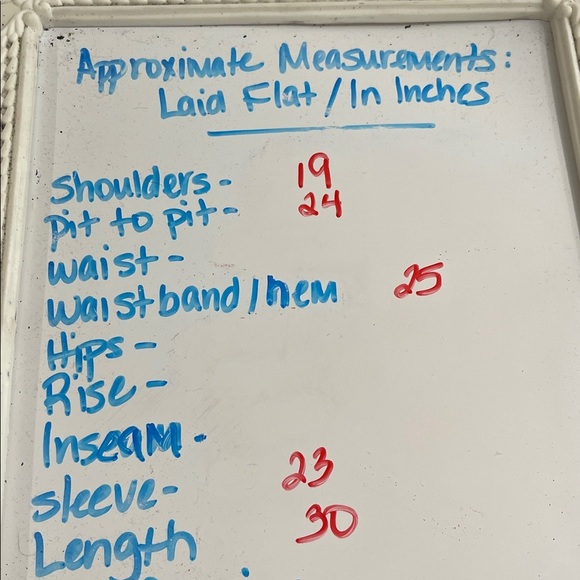 Approximate Measurements:
Laid Flat / In Inches
Shoulders - 19
pit to pit - 24
waist -
waistband / hem 25
Hips -
Rise -
Inseam -
sleeve - 23
Length 30